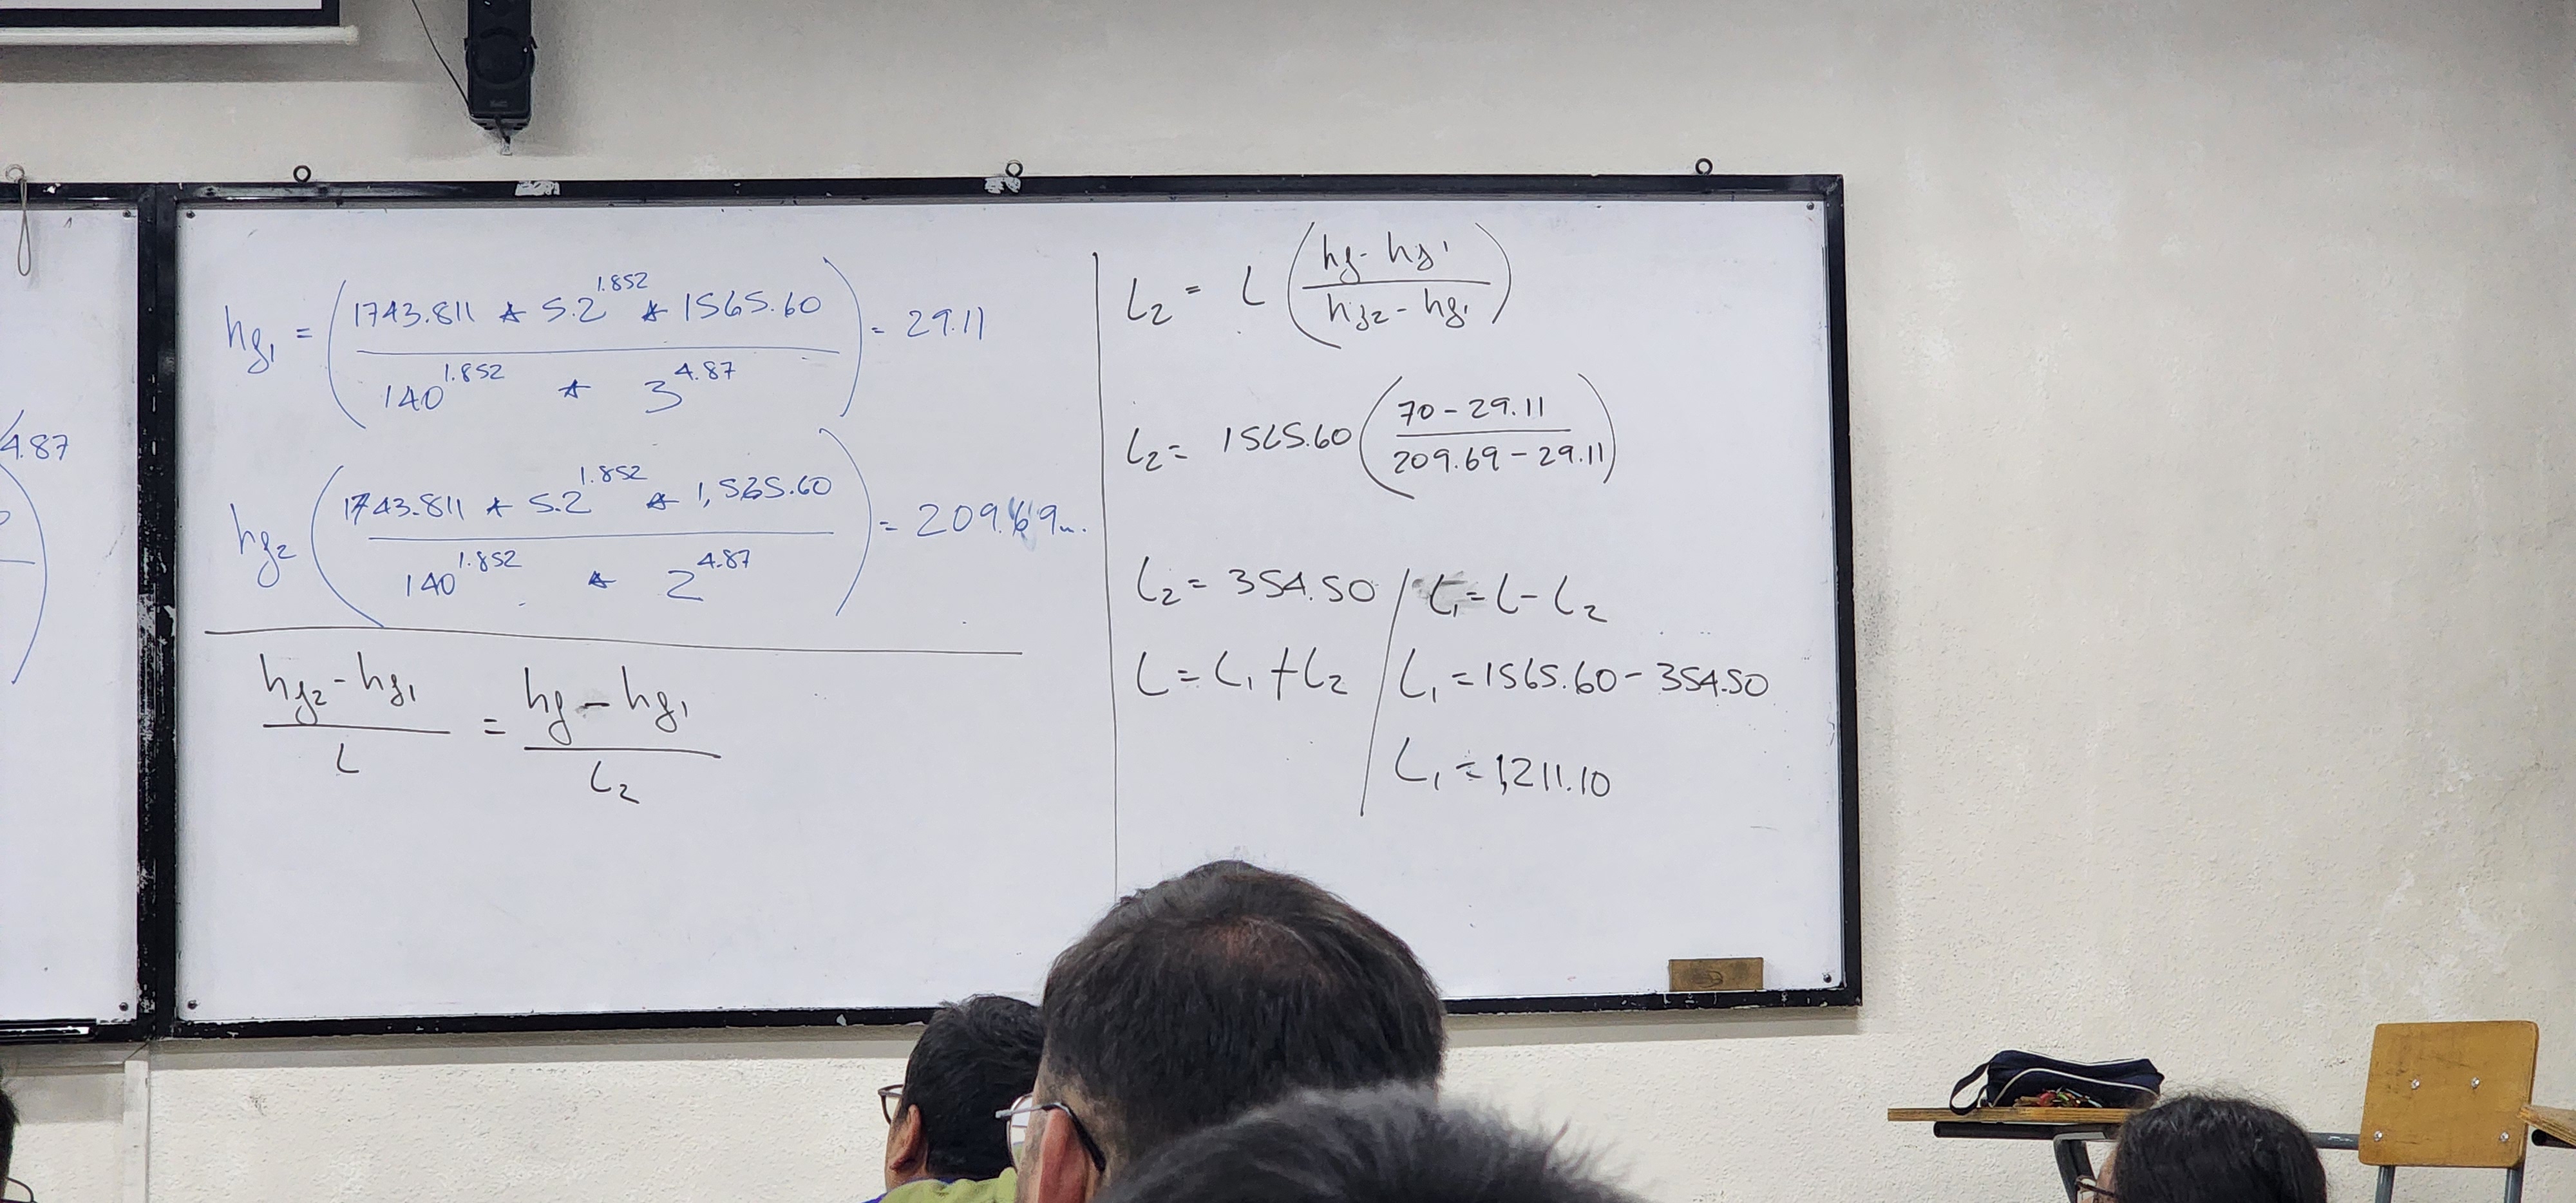 4.87
hf₁ = (1743.811 * 5.2^1.852 * 1565.60 / 140^1.852 * 3^4.87) = 29.11
hf₂ (1743.811 * 5.2^1.852 * 1,565.60 / 140^1.852 * 2^4.87) = 209.69m.
hf₂ - hf₁ / L = hf - hf₁ / L₂
L₂ = L (hf - hf₁ / hf₂ - hf₁)
L₂ = 1565.60 (70 - 29.11 / 209.69 - 29.11)
L₂ = 354.50
L = L₁ + L₂
L₁ = L - L₂
L₁ = 1565.60 - 354.50
L₁ = 1,211.10